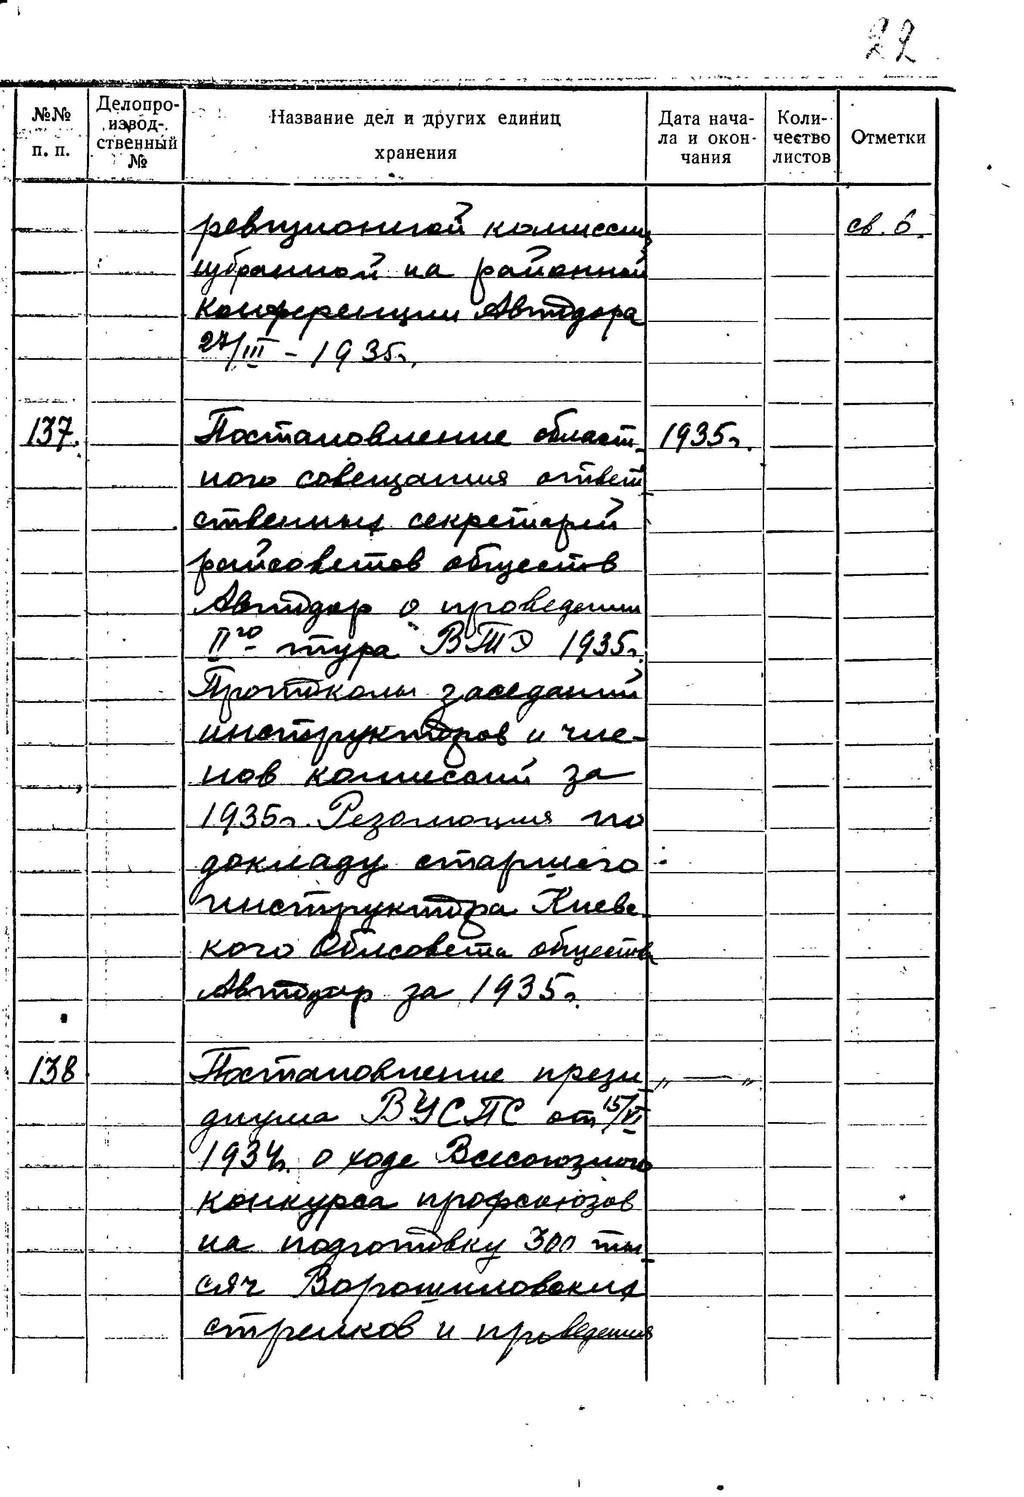 22
№№ п. п.
Делопро-
извод-
ственный
№
Название дел и других единиц
хранения
Дата нача-
ла и окон-
чания
Коли-
чество
листов
Отметки
ревизионной комиссии
избранной на районной
Конференции Автодора
27/III – 1935г.
св. 6.
137. Постановление област- 1935г.
ного совещания ответ-
ственных секретарей
райсоветов обществ
Автодор о проведении
II го тура ВТЭ 1935г.
Протоколы заседаний
инструкторов и чле-
нов комиссий за
1935г. Резолюция по
докладу старшего
инструктора Киевс-
кого Облсовета общества
Автодор за 1935г.
138 Постановление прези- „ — „
диума ВУСПС от 15/VI
1934г. о ходе Всесоюзного
конкурса профсоюзов
на подготовку 300 ты-
сяч Ворошиловских
стрелков и проведения